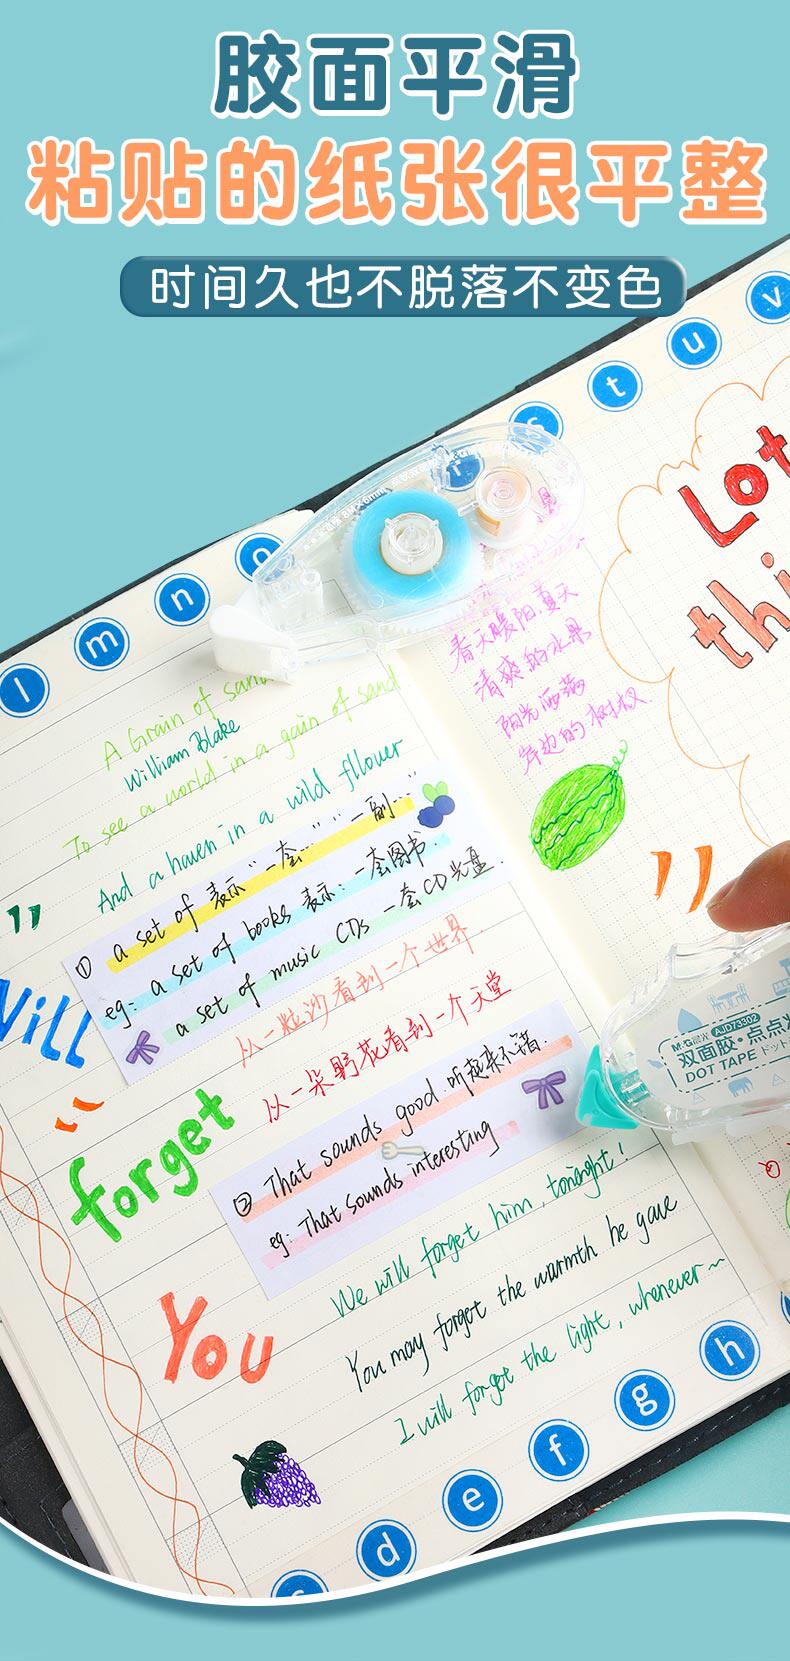 胶面平滑
粘贴的纸张很平整
时间久也不脱落不变色
s t u v
l m n o
8M×6mm
A Grain of sand
William Blake
To see a world in a gain of sand
And a haven in a wild fllower
"
① a set of 表示 "一套…" "一副…"
eg: a set of books 表示: 一套图书.
a set of music CDs 一套CD光盘.
从一粒沙看到一个世界.
从一朵野花看到一个天堂
Will
forget
You
② That sounds good 听起来不错.
eg: That sounds interesting
We will forget him, tonenght!
You may forget the warmth he gave
I will forget the light, whenever~
春天暖阳.夏天
清爽的水果
阳光洒落
岸边的树杈.
Lot
thi
"
M&G晨光 AJD73302
双面胶·点点
DOT TAPE ドット
d e f g h